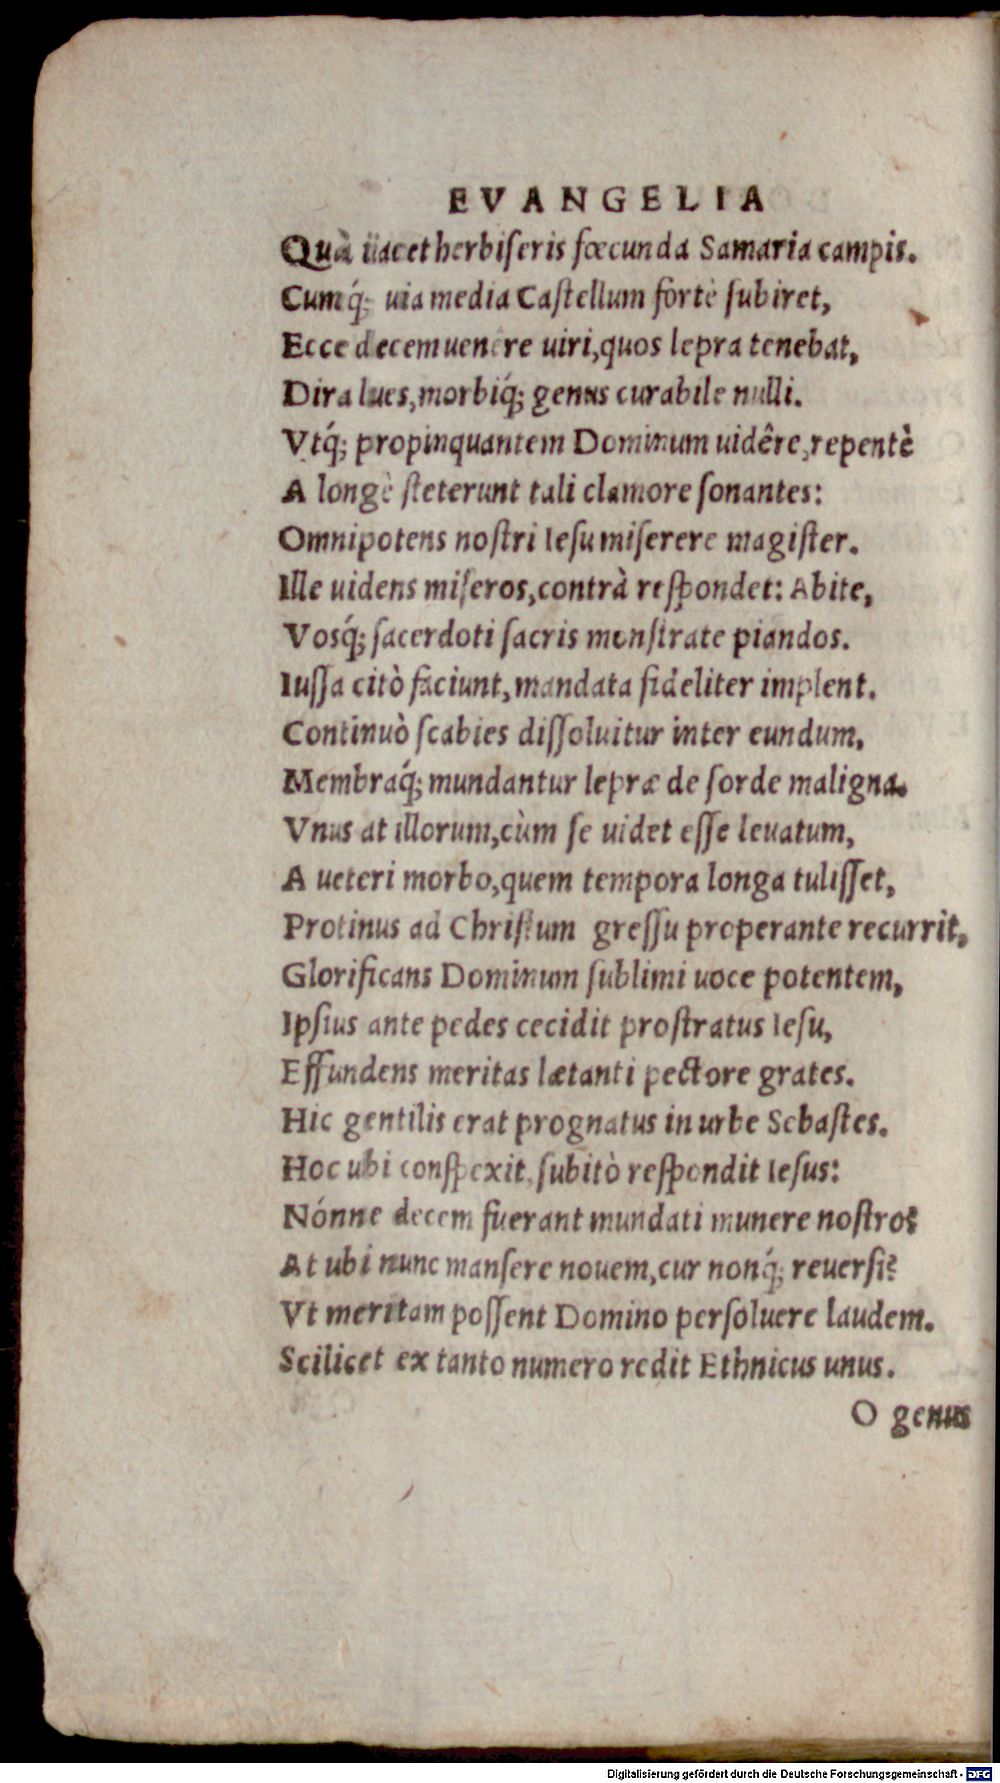 EVANGELIA
Quà iacet herbiferis fœcunda Samaria campis.
Cumq́; uia media Castellum fortè subiret,
Ecce decem uenêre uiri, quos lepra tenebat,
Dira lues, morbiq́; genus curabile nulli.
Vtq́; propinquantem Dominum uidêre, repentè
A longè steterunt tali clamore sonantes:
Omnipotens nostri Iesu miserere magister.
Ille uidens miseros, contrà respondet: Abite,
Vosq́; sacerdoti sacris monstrate piandos.
Iussa citò faciunt, mandata fideliter implent.
Continuò scabies dissoluitur inter eundum,
Membraq́; mundantur lepræ de sorde maligna.
Vnus at illorum, cùm se uidet esse leuatum,
A ueteri morbo, quem tempora longa tulisset,
Protinus ad Christum gressu properante recurrit,
Glorificans Dominum sublimi uoce potentem,
Ipsius ante pedes cecidit prostratus Iesu,
Effundens meritas lætanti pectore grates.
Hic gentilis erat prognatus in urbe Sebastes.
Hoc ubi conspexit, subitò respondit Iesus:
Nónne decem fuerant mundati munere nostro?
At ubi nunc mansere nouem, cur nonq́; reuersi?
Vt meritam possent Domino persoluere laudem.
Scilicet ex tanto numero redit Ethnicus unus.
O genus
Digitalisierung gefördert durch die Deutsche Forschungsgemeinschaft - DFG